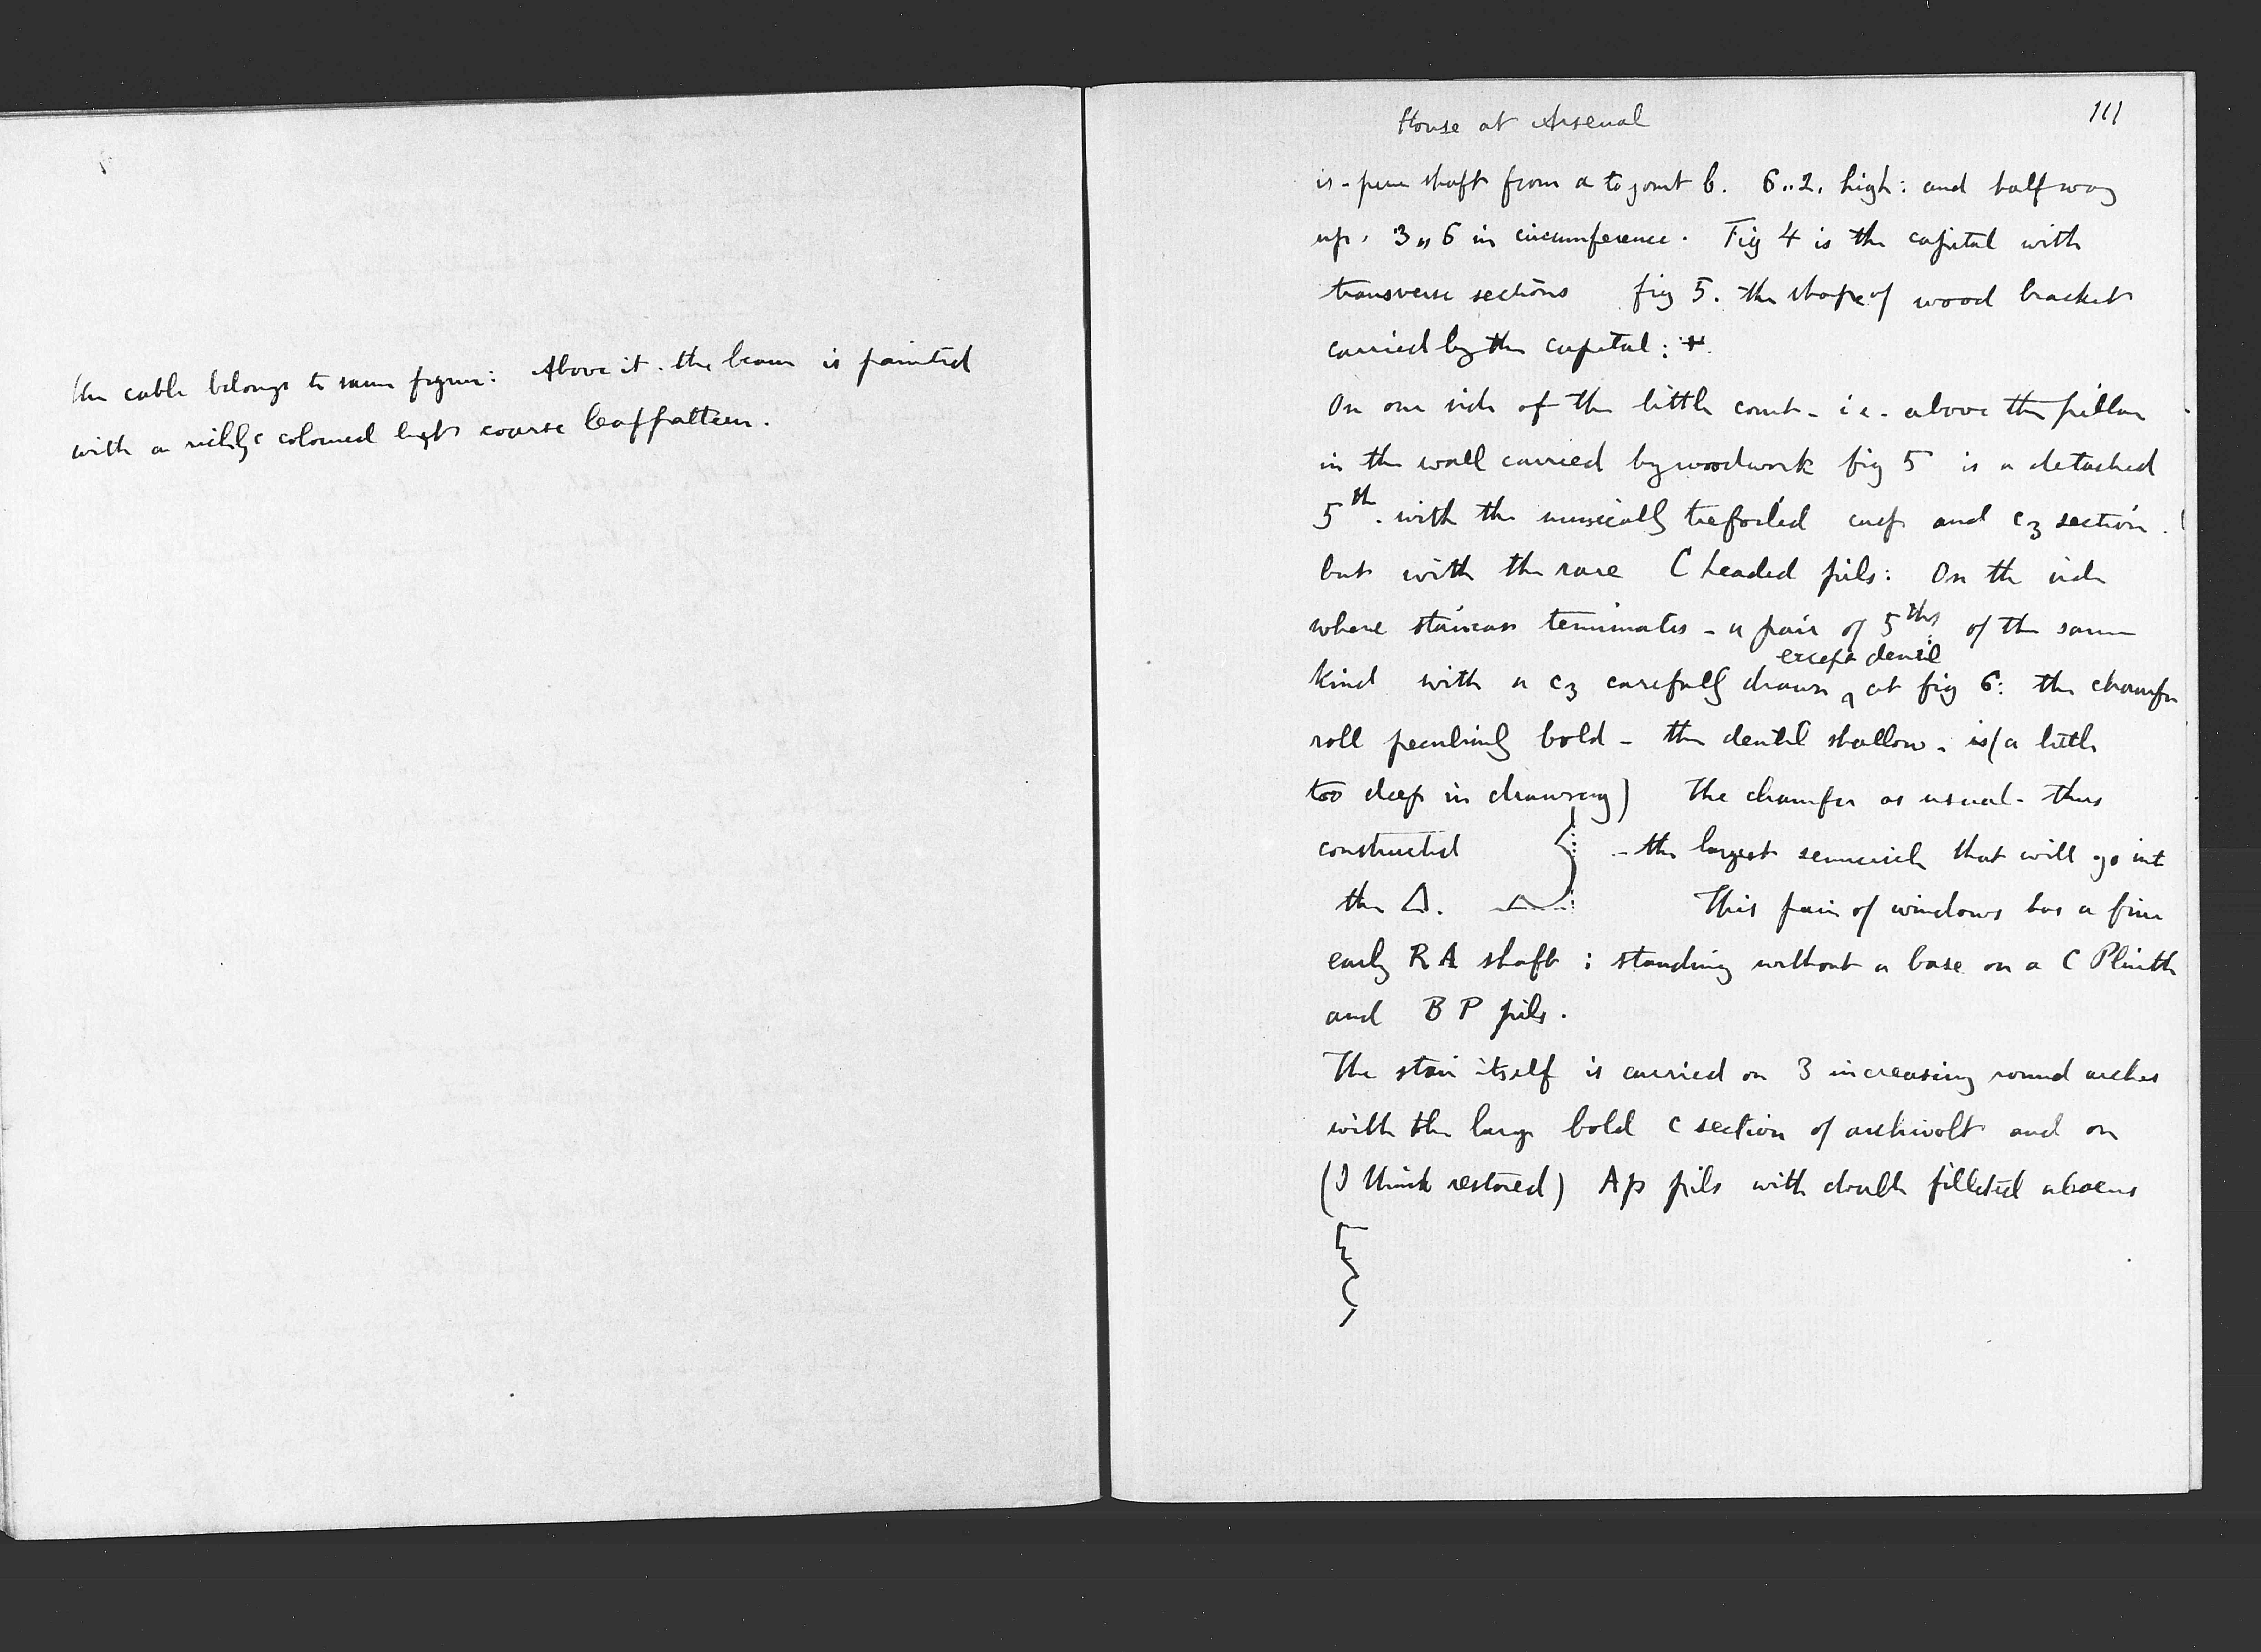 the cable belongs to same figure: Above it. the beam is painted
with a richly coloured light coarse leaf pattern.
House at Arsenal
111
is - pure shaft from a to joint b. 6..2. high: and half way
up, 3,, 6 in circumference. Fig 4 is the capital with
transverse sections fig 5. the shape of wood bracket
carried by the capital: +.
On one side of the little court - i e - above the pillar
in the wall carried by woodwork fig 5 is a detached
5th. with the musically trefoiled cusp and c3 section.
but with the rare C headed pils: On the side
where staircase terminates - a pair of 5ths of the same
except dentil
kind with a c3 carefully drawn ^ at fig 6: the chamfer
roll peculiarly bold - the dentil shallow. is (a little
too deep in drawing) The chamfer as usual - thus
constructed - the largest semicircle that will go int
the Δ. This pair of windows has a fine
early R A shaft; standing without a base on a C Plinth
and B P pils.
The stair itself is carried on 3 increasing round arches
with the large bold c section of archivolt and on
(I think restored) Ap pils with double filleted abacus